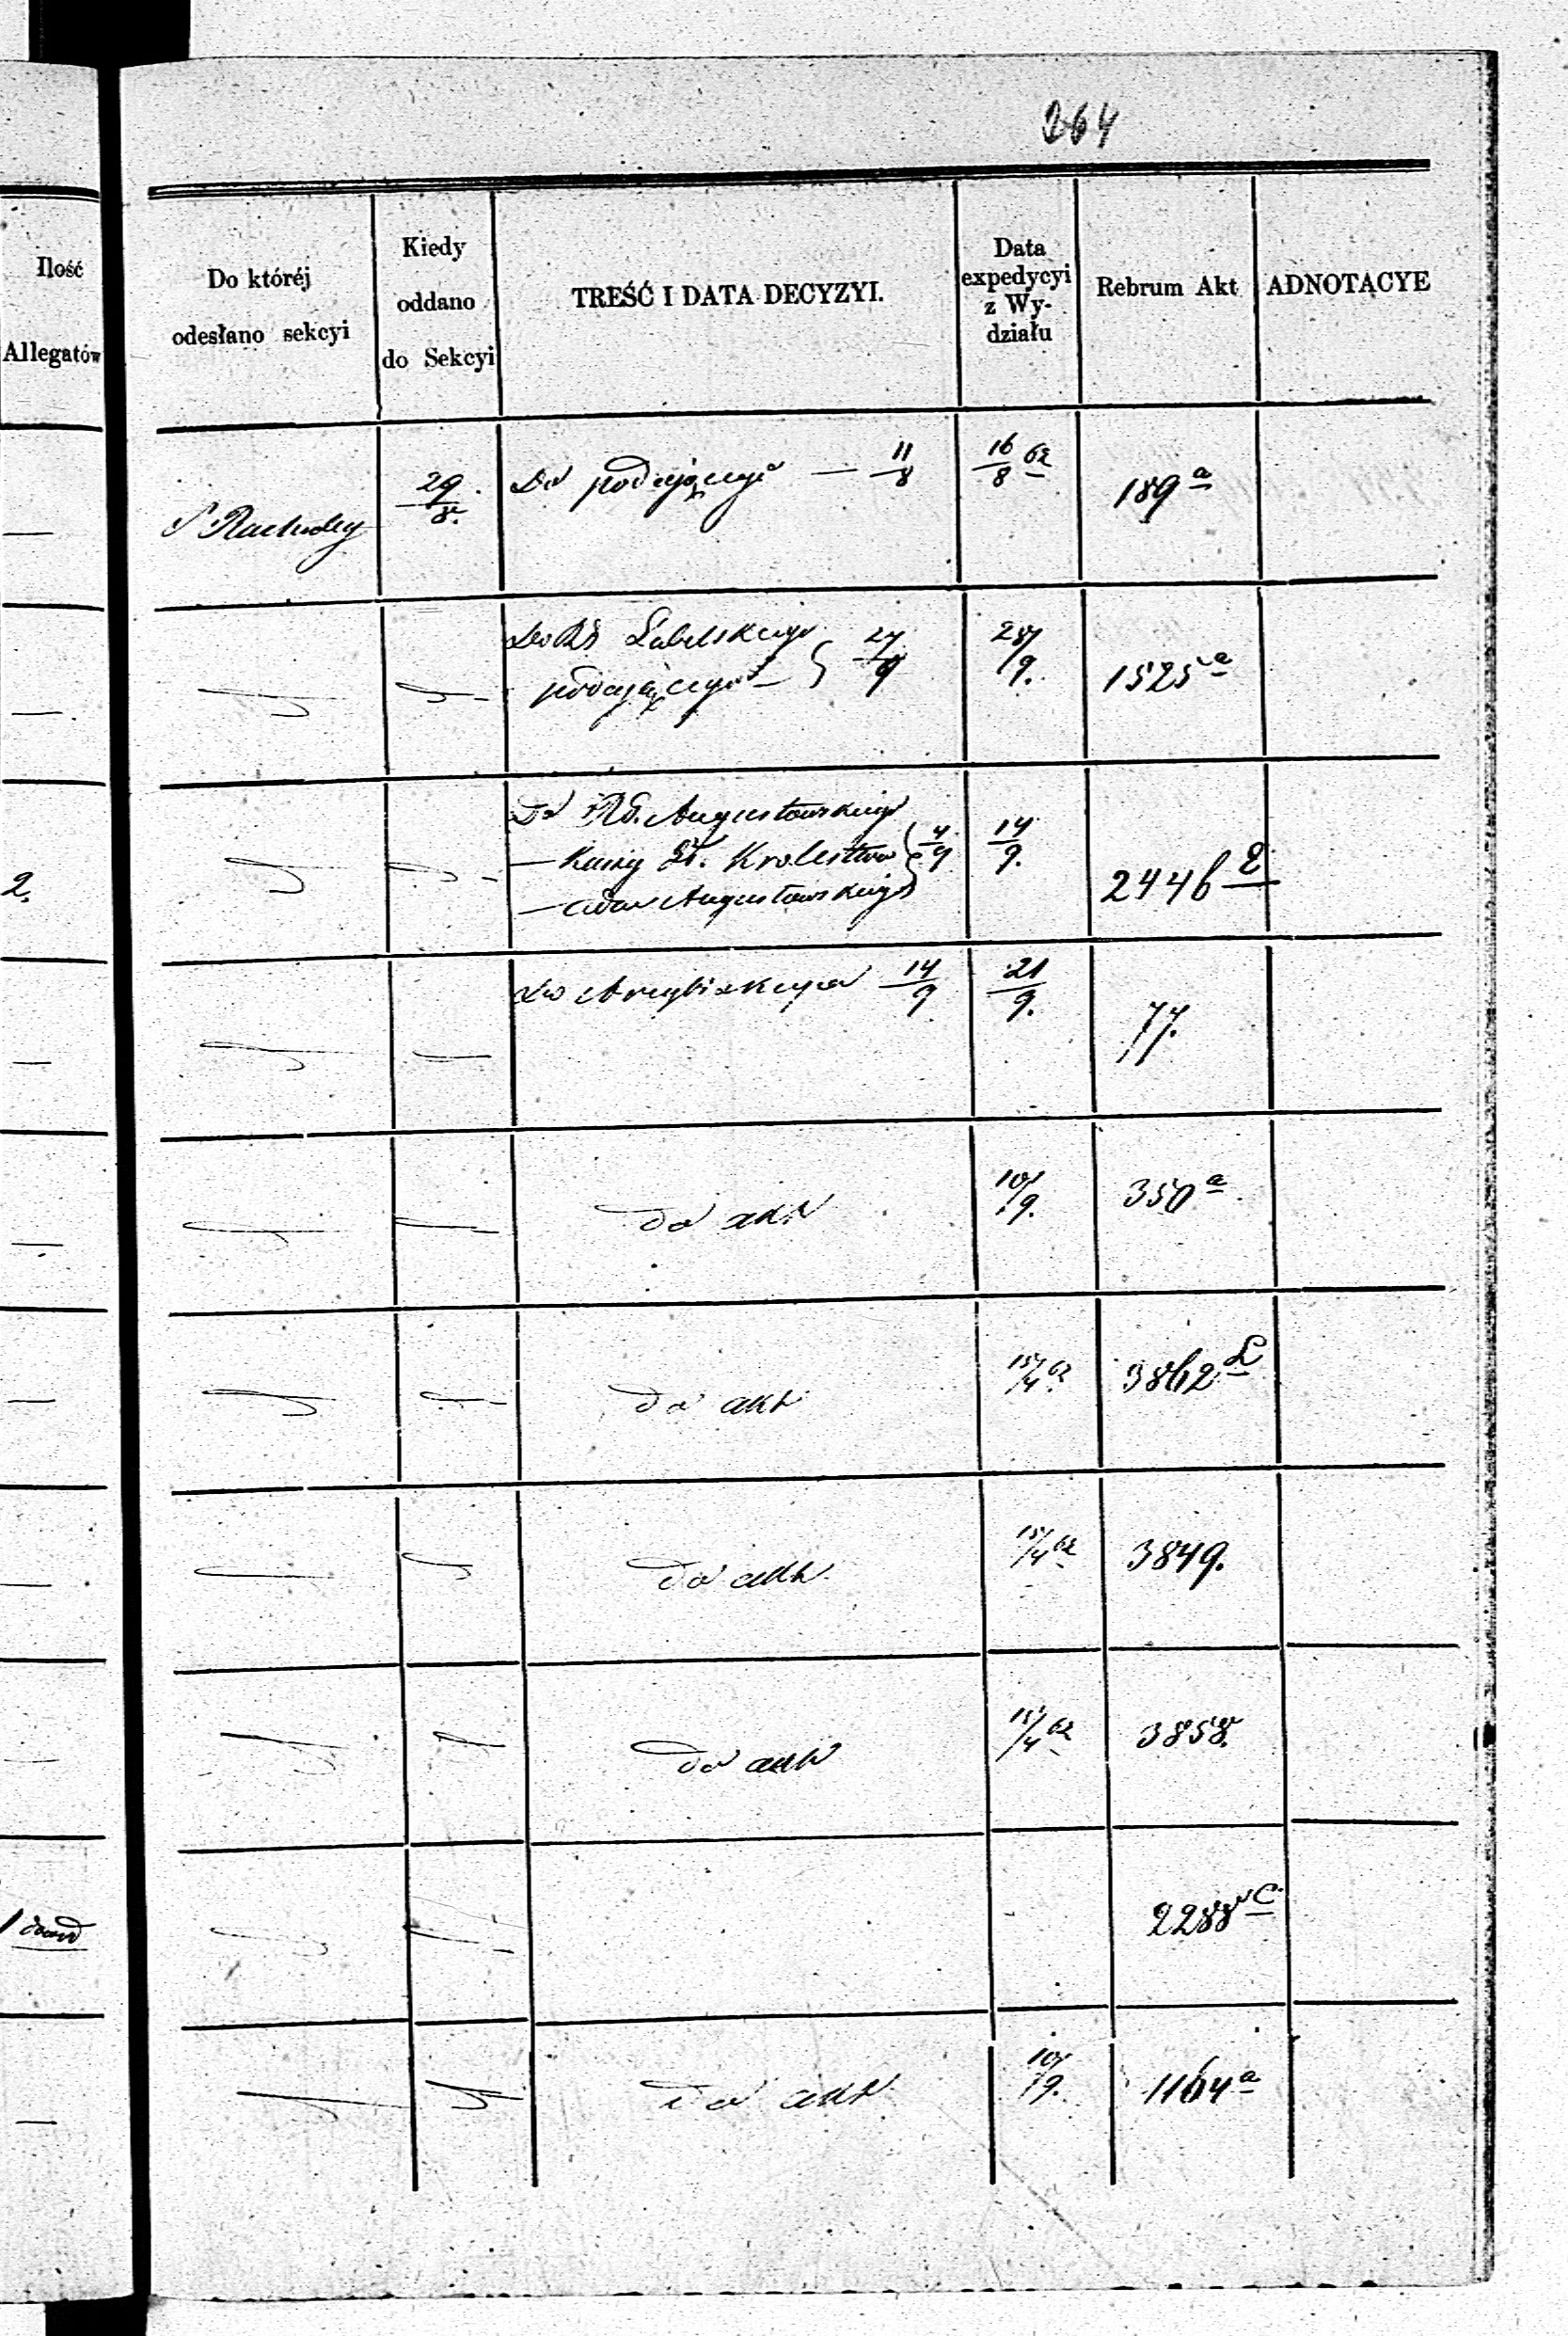 264
Ilość
Allegatów
Do któréj
odesłano sekcyi
Kiedy
oddano
do Sekcyi
TREŚĆ I DATA DECYZYI.
Data
expedycyi
z Wy-
działu
Rebrum Akt
ADNOTACYE
29/8. Do podającego — 11/8 16/8 62 189 a
Lubelskiego
podającego — } 27/9 28/9. 1525 a
2. Do Augustowskiego
— Kassy Kr. Królestwa } 4/9 14/9. 2446 E
— Augustowskiego
Do Arcybiskupa 14/9 21/9. 77.
do akt 10/9. 350 a
do akt 15/4 62 3862 L
do akt 15/4 62 3849.
do akt 15/4 62 3858.
1 2288 C.
do akt 10/9. 1164 a